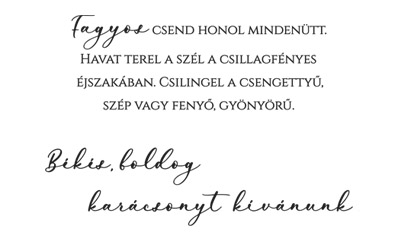 Fagyos csend honol mindenütt.
Havat terel a szél a csillagfényes
éjszakában. Csilingel a csengettyű,
szép vagy fenyő, gyönyörű.
Békés, boldog
karácsonyt kívánunk